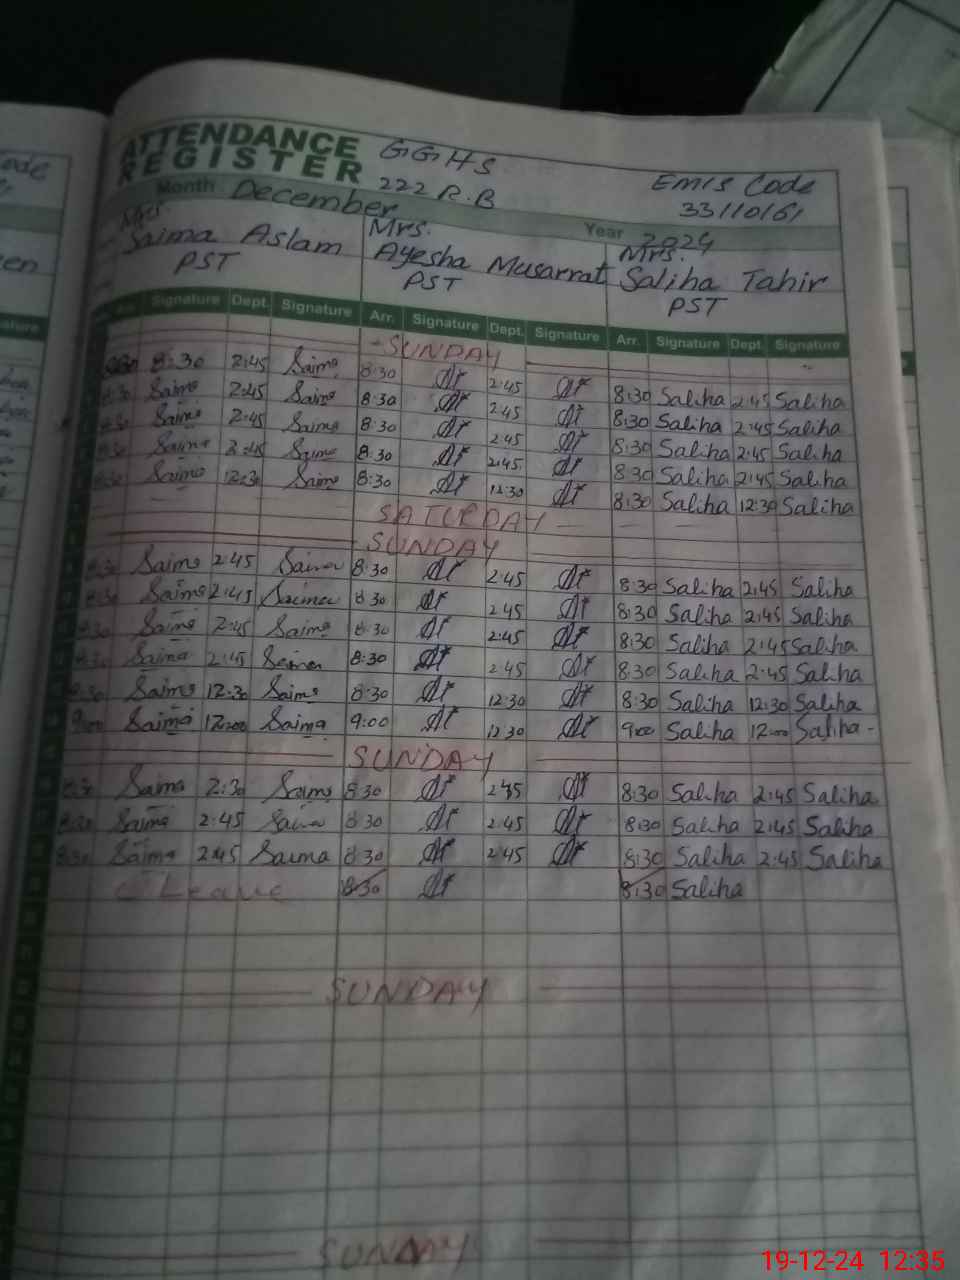 ATTENDANCE REGISTER G.G.H.S
222 R.B
EMIS Code
33110161
Month December Year 2024
Mrs. Saima Aslam PST
Mrs. Ayesha Musarrat PST
Mrs. Saliha Tahir PST
Signature Dept. Signature Arr. Signature Dept. Signature Arr. Signature Dept. Signature
SUNDAY
8:30 2:45 Saima 8:30 2:45 8:30 Saliha 2:45 Saliha
8:30 Saima 2:45 Saima 8:30 2:45 8:30 Saliha 2:45 Saliha
8:30 Saima 2:45 Saima 8:30 2:45 8:30 Saliha 2:45 Saliha
8:30 Saima 2:45 Saima 8:30 2:45 8:30 Saliha 2:45 Saliha
8:30 Saima 12:30 Saima 8:30 12:30 8:30 Saliha 12:30 Saliha
SATURDAY
SUNDAY
8:30 Saima 2:45 Saima 8:30 2:45 8:30 Saliha 2:45 Saliha
8:30 Saima 2:45 Saima 8:30 2:45 8:30 Saliha 2:45 Saliha
8:30 Saima 2:45 Saima 8:30 2:45 8:30 Saliha 2:45 Saliha
8:30 Saima 2:45 Saima 8:30 2:45 8:30 Saliha 2:45 Saliha
8:30 Saima 12:30 Saima 8:30 12:30 8:30 Saliha 12:30 Saliha
9:00 Saima 12:00 Saima 9:00 12:30 9:00 Saliha 12:00 Saliha
SUNDAY
8:30 Saima 2:30 Saima 8:30 2:45 8:30 Saliha 2:45 Saliha
8:30 Saima 2:45 Saima 8:30 2:45 8:30 Saliha 2:45 Saliha
8:30 Saima 2:45 Saima 8:30 2:45 8:30 Saliha 2:45 Saliha
Leave 8:30 8:30 Saliha
SUNDAY
SUNDAY
19-12-24 12:35